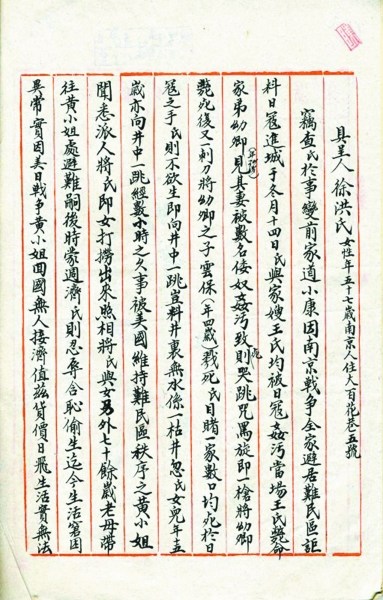 具呈人 徐洪氏 女性年五十七歲南京人住大百花巷十五號
竊查氏於事變前家道小康因南京戰争全家避居難民區詎
料日寇進城于冬月十四日氏與家嫂王氏均被日寇姦污當場王氏斃命
家弟幼卿見其妻被數名倭奴姦污致死則哭跳咒罵旋即一槍將幼卿
斃死後又一刺刀將幼卿之子雲保(年四歲)戮死氏目睹一家數口均死於日
寇之手氏則不欲生即向井中一跳豈料井裏無水係一枯井忽氏女兒年五
歲亦向井中一跳經數小時之久事被美國維持難民區秩序之黄小姐
聞悉派人將氏即女打撈出來照相將氏與女另外七十餘歲老母帶
往黄小姐處避難嗣後時蒙週濟氏則忍辱含恥偷生迄今生活窘困
異常實因美日戰争黄小姐回國無人接濟值兹貨價日飛生活實無法